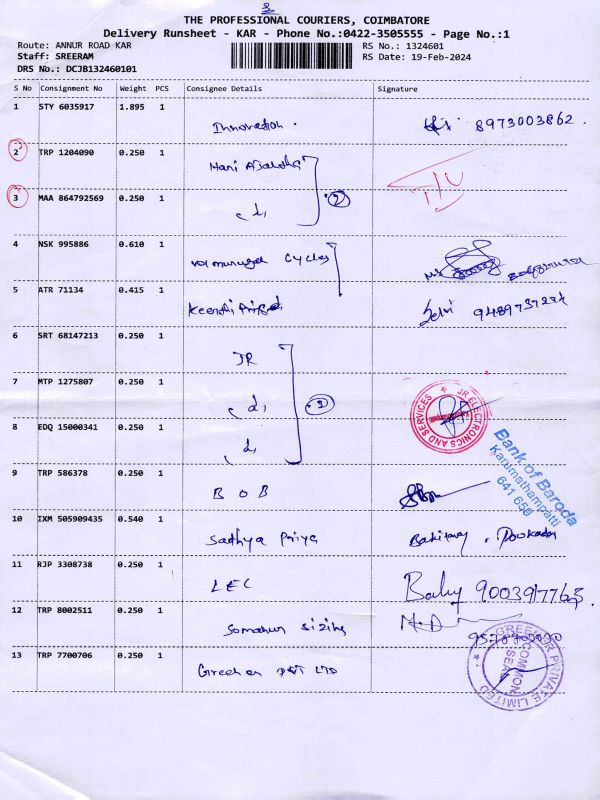 THE PROFESSIONAL COURIERS, COIMBATORE
Delivery Runsheet - KAR - Phone No.:0422-3505555 - Page No.:1
Route: ANNUR ROAD KAR
RS No.: 1324601
Staff: SREERAM
RS Date: 19-Feb-2024
DRS No.: DCJB132460101
S No Consignment No Weight PCS Consignee Details Signature
1 STY 6035917 1.895 1
Innovation . 8973003862 .
2 TRP 1204090 0.250 1
Hari
3 MAA 864792569 0.250 1
2
4 NSK 995886 0.610 1
Cycles
5 ATR 71134 0.415 1
Selvi
6 SRT 68147213 0.250 1
JR
7 MTP 1275807 0.250 1
JR ELECTRONICS AND SERVICES
8 EDQ 15000341 0.250 1
Bank of Baroda
Karumathampatti
641 658
9 TRP 586378 0.250 1
B O B
10 IXM 505909435 0.540 1
Sathya Priya
11 RJP 3308738 0.250 1
LEC
12 TRP 8002511 0.250 1
13 TRP 7700706 0.250 1
PVT LTD
COMMON SEAL
PRIVATE LIMITED